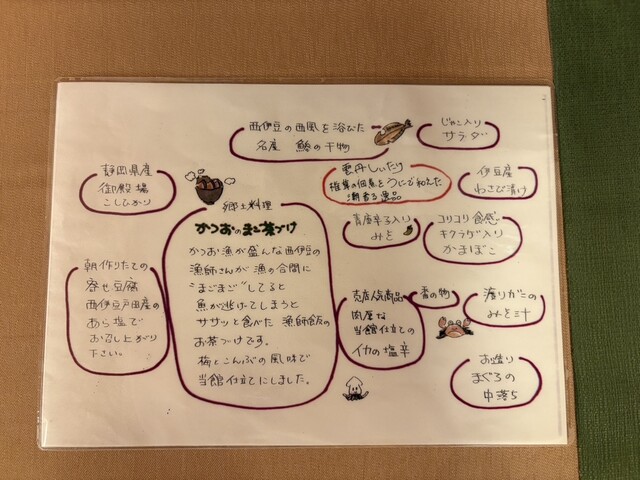 西伊豆の西風を浴びた
名産 鯵の干物
じゃこ入り
サラダ
静岡県産
御殿場
こしひかり
雲丹しいたけ
椎茸の佃煮をうにで和えた
潮香る逸品
伊豆産
わさび漬け
郷土料理
かつおのまご茶づけ
かつお漁が盛んな西伊豆の
漁師さんが漁の合間に
"まごまご"してると
魚が逃げてしまうと
ササッと食べた漁師飯の
お茶づけです。
梅とこんぶの風味で
当館仕立てにしました。
青唐辛子入り
みそ
コリコリ食感
キクラゲ入り
かまぼこ
朝作りたての
寄せ豆腐
西伊豆戸田産の
あら塩で
お召し上がり
下さい。
売店人気商品
肉厚な
当館仕立ての
イカの塩辛
香の物
渡りガニの
みそ汁
お造り
まぐろの
中落ち